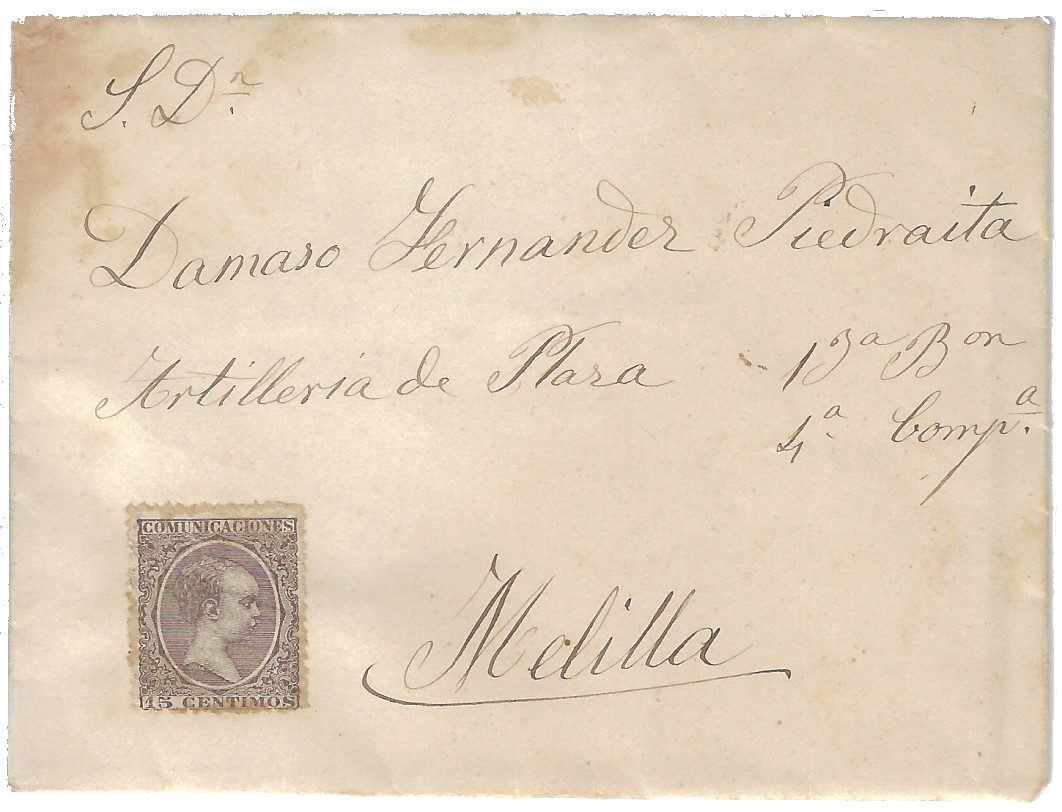 S. Dn.
Damaso Fernander Piedraita
Artilleria de Plasa 13a Bon
4a. Compa.
COMUNICACIONES
15 CENTIMOS
Melilla